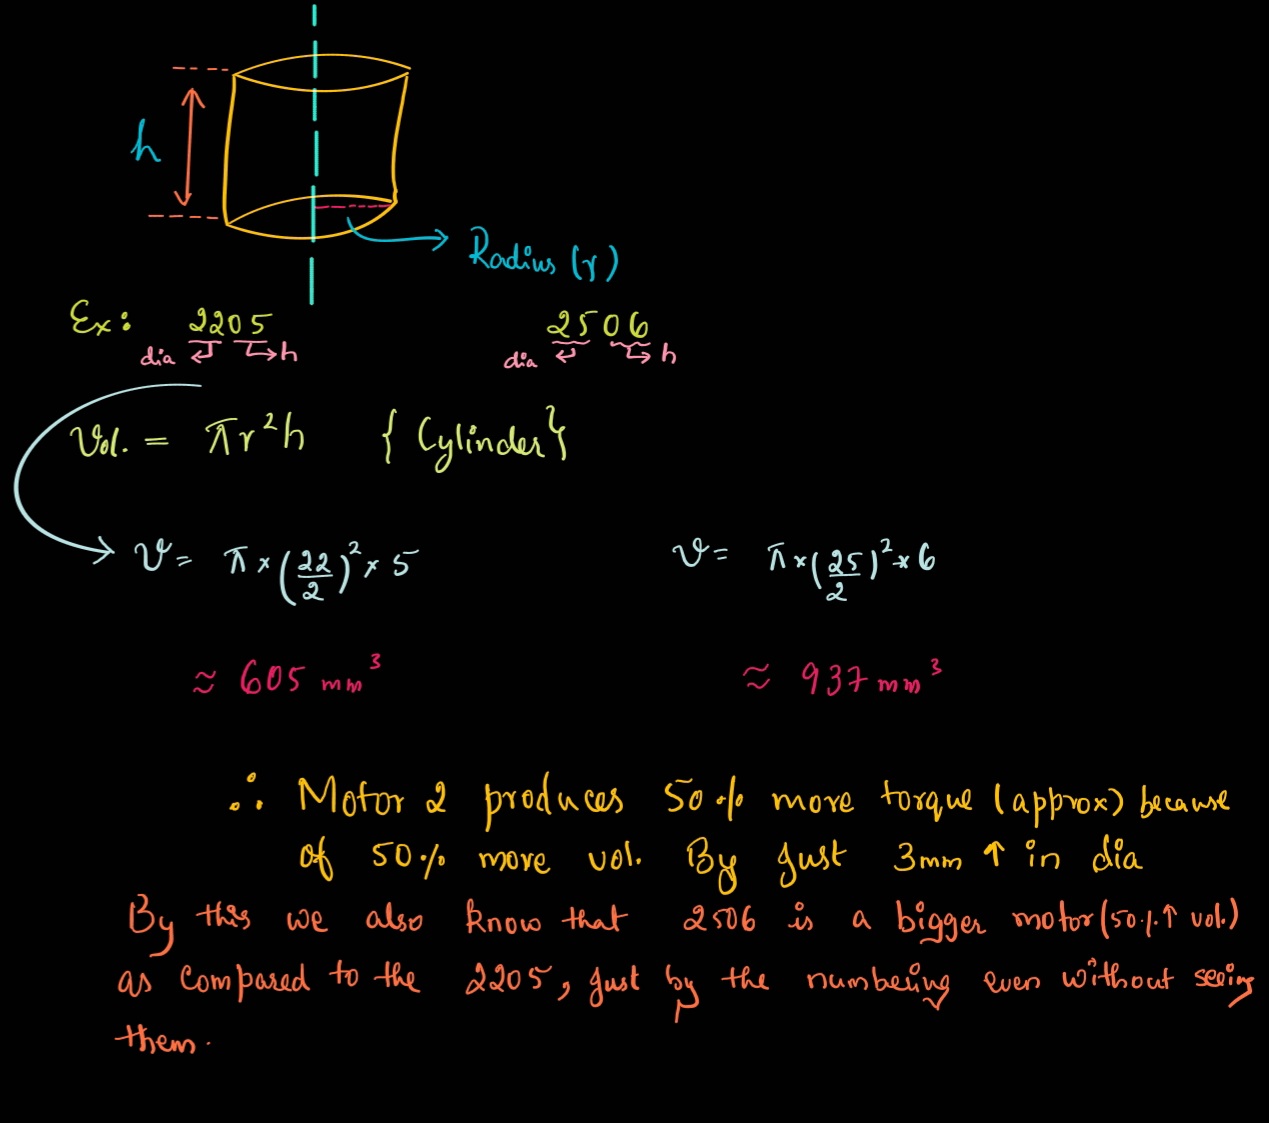 h
Radius (r)
Ex: 2205 2506
dia h dia h
Vol. = πr²h { Cylinder }
V = π × (22/2)² × 5 V = π × (25/2)² × 6
≈ 605 mm³ ≈ 937 mm³
∴ Motor 2 produces 50% more torque (approx) because
of 50% more vol. By just 3mm ↑ in dia
By this we also know that 2506 is a bigger motor (50% ↑ vol.)
as compared to the 2205, just by the numbering even without seeing
them.